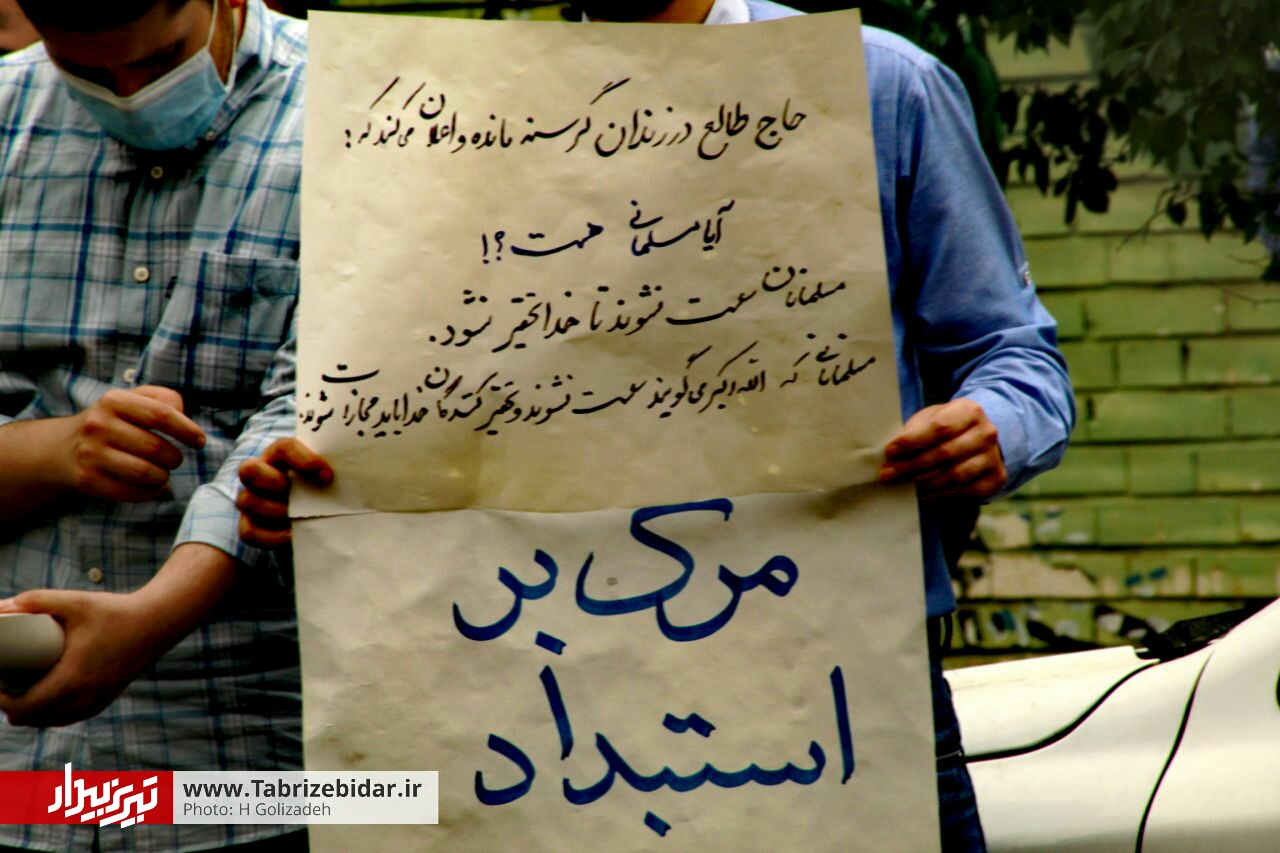 حاج طالع در زندان گرسنه مانده و اعلان می‌کند که :
آیا مسلمانی هست ؟!
مسلمانان سست نشوند تا خدا تحقیر نشود.
مسلمانانی که الله اکبر می‌گویند سست نشوند و تحقیر کنندگان خدا باید مجازات شوند.
مرگ بر
استبداد
تبریز بیدار
www.Tabrizebidar.ir
Photo: H Golizadeh